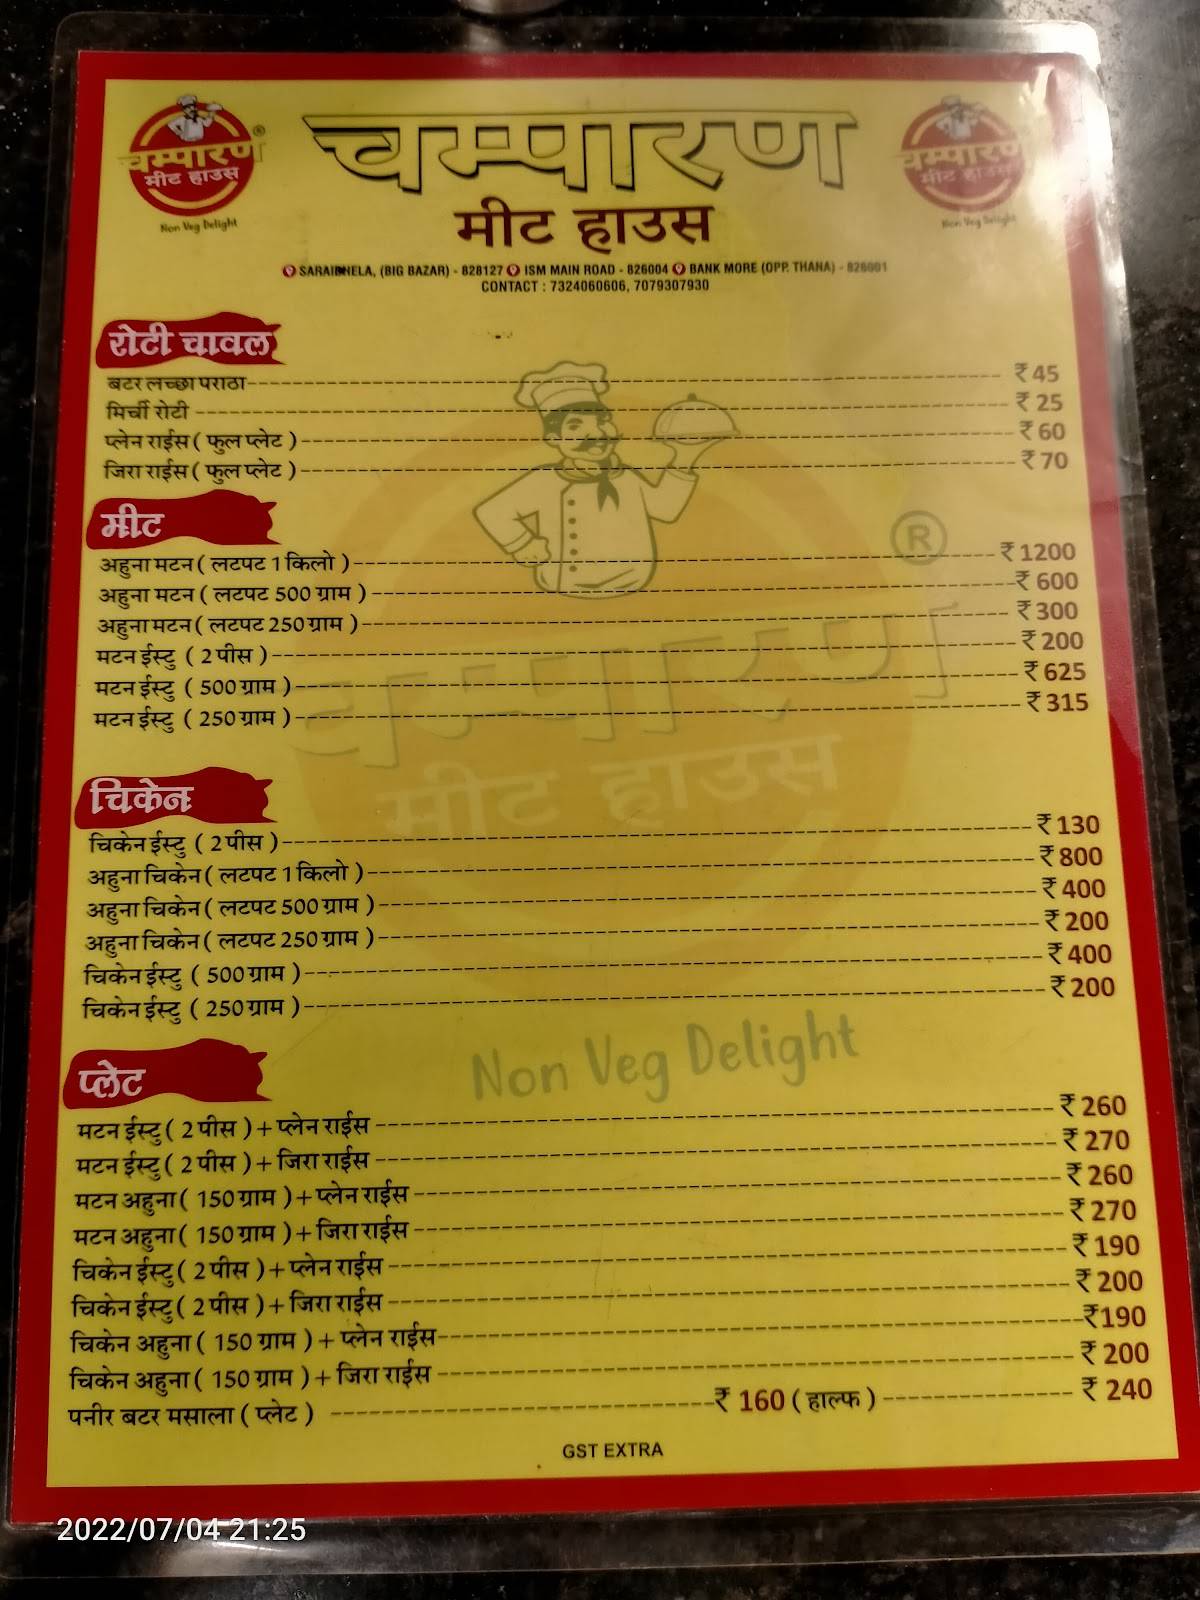 चम्पारण®
मीट हाउस
Non Veg Delight
चम्पारण
मीट हाउस
चम्पारण
मीट हाउस
Non Veg Delight
SARAIDHELA, (BIG BAZAR) - 828127 ISM MAIN ROAD - 826004 BANK MORE (OPP. THANA) - 826001
CONTACT : 7324060606, 7079307930
रोटी चावल
बटर लच्छा पराठा ₹ 45
मिर्ची रोटी ₹ 25
प्लेन राईस ( फुल प्लेट ) ₹ 60
जिरा राईस ( फुल प्लेट ) ₹ 70
मीट
अहुना मटन ( लटपट 1 किलो ) ₹ 1200
अहुना मटन ( लटपट 500 ग्राम ) ₹ 600
अहुना मटन ( लटपट 250 ग्राम ) ₹ 300
मटन ईस्टु ( 2 पीस ) ₹ 200
मटन ईस्टु ( 500 ग्राम ) ₹ 625
मटन ईस्टु ( 250 ग्राम ) ₹ 315
®
चम्पारण
मीट हाउस
चिकेन
चिकेन ईस्टु ( 2 पीस ) ₹ 130
अहुना चिकेन ( लटपट 1 किलो ) ₹ 800
अहुना चिकेन ( लटपट 500 ग्राम ) ₹ 400
अहुना चिकेन ( लटपट 250 ग्राम ) ₹ 200
चिकेन ईस्टु ( 500 ग्राम ) ₹ 400
चिकेन ईस्टु ( 250 ग्राम ) ₹ 200
Non Veg Delight
प्लेट
मटन ईस्टु ( 2 पीस ) + प्लेन राईस ₹ 260
मटन ईस्टु ( 2 पीस ) + जिरा राईस ₹ 270
मटन अहुना ( 150 ग्राम ) + प्लेन राईस ₹ 260
मटन अहुना ( 150 ग्राम ) + जिरा राईस ₹ 270
चिकेन ईस्टु ( 2 पीस ) + प्लेन राईस ₹ 190
चिकेन ईस्टु ( 2 पीस ) + जिरा राईस ₹ 200
चिकेन अहुना ( 150 ग्राम ) + प्लेन राईस ₹190
चिकेन अहुना ( 150 ग्राम ) + जिरा राईस ₹ 200
पनीर बटर मसाला ( प्लेट ) ₹ 160 ( हाल्फ ) ₹ 240
GST EXTRA
2022/07/04 21:25